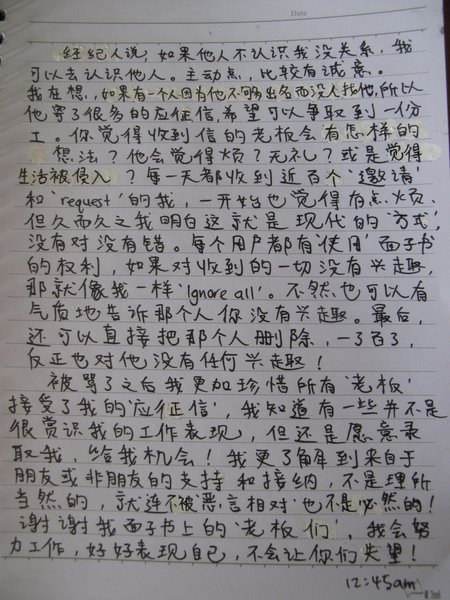 Date
经纪人说，如果他人不认识我没关系，我
可以去认识他人。主动点，比较有诚意。
我在想，如果有一个人因为他不够出名而没人找他，所以
他寄了很多的应征信，希望可以争取到一份
工。你觉得收到信的老板会有怎样的
想法？他会觉得烦？无礼？或是觉得
生活被侵入？每一天都收到近百个‘邀请’
和‘request’的我，一开始也觉得有点烦、
但久而久之我明白这就是现代的‘方式’，
没有对没有错。每个用户都有‘使用’面子书
的权利，如果对收到的一切没有兴趣，
那就像我一样‘Ignore all’。不然也可以有
气质地告诉那个人你没有兴趣。最后，
还可以直接把那个人删除，一了百了，
反正也对他没有任何兴趣！
被骂了之后我更加珍惜所有‘老板’
接受了我的‘应征信’，我知道有一些并不是
很赏识我的工作表现，但还是愿意录
取我、给我机会！我更了解到来自于
朋友或非朋友的支持和接纳，不是理所
当然的，就连不被‘恶言相对’也不是必然的！
谢谢我面子书上的‘老板们’，我会努
力工作，好好表现自己，不会让你们失望！
12:45am